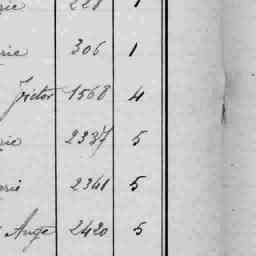 rie 228 1
rie 306 1
Victor 1568 4
rie 2337 5
rie 2361 5
Ange 2420 5